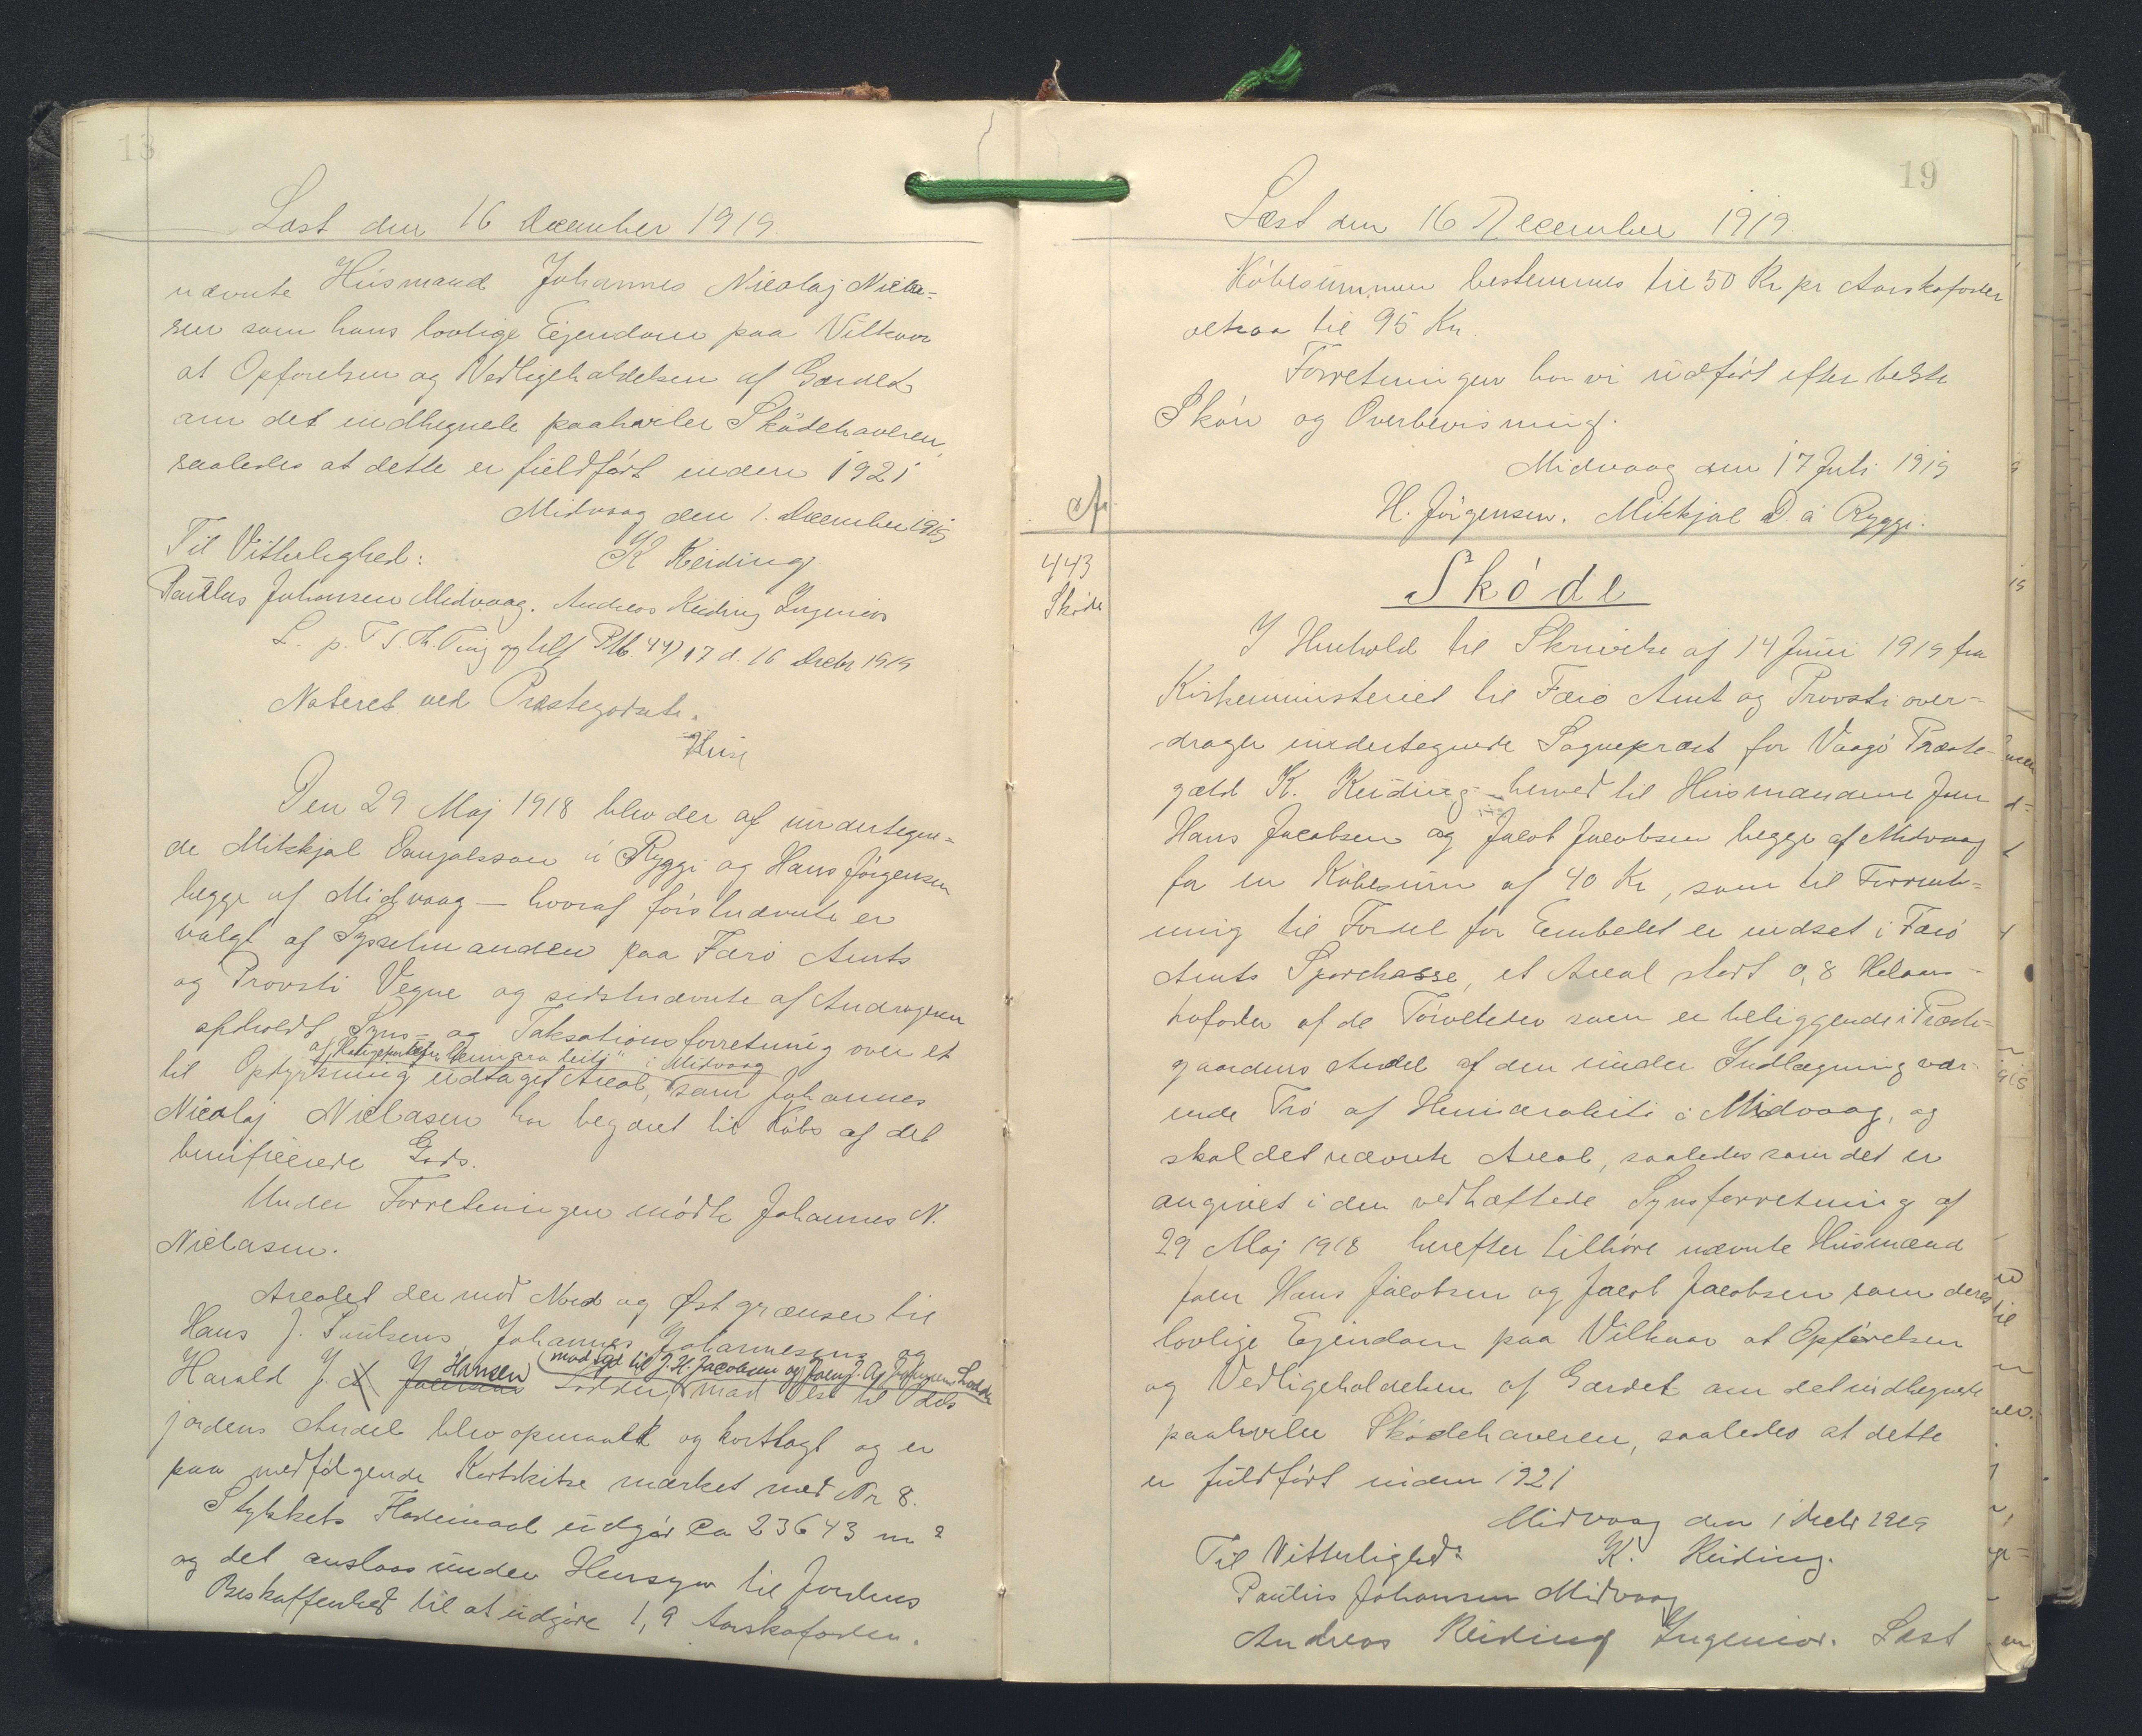 13
Læst den 16 December 1919.
nævnte Húsmand Johannes Nicolaj Niela=
sen som hans lovlige Ejendom paa Vilkaar
at Opførelsen og Vedligeholdelsen af Gærdet
om det indhegnede paahviler Skødehaveren,
saaledes at dette er fuldført inden 1921
Midvaag den 1. December 1919
Til Vitterlighed: K Keiding
Paúlus Johansen Midvaag. Andreas Keiding Ingeniør
L. p. F. S. Th. Ting Ptb. 44/17 d. 16 Decbr 1919
Noteret ved Præstegodset.
Den 29 Maj 1918 blev der af úndertegne=
de Mikkjal Danjalsson á Ryggi og Hans Jørgensen
begge af Midvaag — hvoraf førstnævnte er
valgt af Sysselmanden paa Færø Amts
og Provsti Vegne og sidstnævnte af Andrageren
afholdt Syns- og Taksationsforretning over et
af Heimara heiti" i Midvaag
til Opdyrkning udtaget Areal, som Johannes
Nicolaj Nielasen har begæret til Købs af det
benificerede Gods.
Under Forretningen mødte Johannes N.
Nielasen.
Arealet der mod Nord og Øst grænser til
Hans J. Poúlsens Johannes Johannesens og
Hansen mod Syd til J. H. Jacobsen og Lodder
Harald J. Lodder, mod Vest til Odels
jordens Andel blev opmaalt og kortlagt og er
paa medfølgende Kortskitse mærket med Nr 8.
Stykkets Flademaal údgør ca 23643 m²
og det anslaas únder Hensyn til Jordens
Beskaffenhed til at údgøre 1,9 Aarskofoder.
19
Læst den 16 December 1919.
Købesúmmen bestemmes til 50 Kr pr Aarskofoder
altsaa til 95 Kr.
Forretningen har vi údført efter bedste
Skøn og Overbevisning.
Midvaag den 17 Juli 1919
H. Jørgensen. Mikkjal D. á Ryggi.
443
Skøde
Skøde
I Henhold til Skrivelse af 14 Júni 1919 fra
Kirkeministeriet til Færø Amt og Provsti over=
drager úndertegnede Sognepræst for Vaagø Præste-
gæld K. Keiding - herved til Húsmændene Joen
Hans Jacobsen og Jacob Jacobsen begge af Midvaag
for en Købesúm af 40 Kr, som til Forrent=
ning til Fordel for Embedet er indsat i Færø
Amts Sparekasse, et Areal stort 0,8 Helaars-
kofoder af de Tørvelader som er beliggende i Præste=
gaardens Andel af den únder Indlægning vær-
ende Trø af Heimaraheiti i Midvaag, og
skal det nævnte Areal, saaledes som det er
angivet i den vedhæftede Synsforretning af
29 Maj 1918 herefter tilhøre nævnte Húsmænd
Joen Hans Jacobsen og Jacob Jacobsen som deres
lovlige Ejendom paa Vilkaar at Opførelsen
og Vedligeholdelsen af Gærdet om det indhegnede
paahviler Skødehaveren, saaledes at dette
er fuldført inden 1921
Midvaag den 1 Decbr 1919
Til Vitterlighed: K. Keiding.
Paúlús Johansen Midvaag
Andreas Keiding Ingeniør. Læst